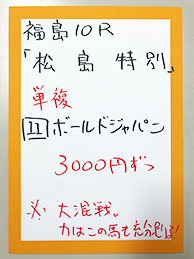 福島10R
「松島特別」
単複
11 ボールドジャパン
3000円ずつ
※大混戦。
力はこの馬も充分足りる!